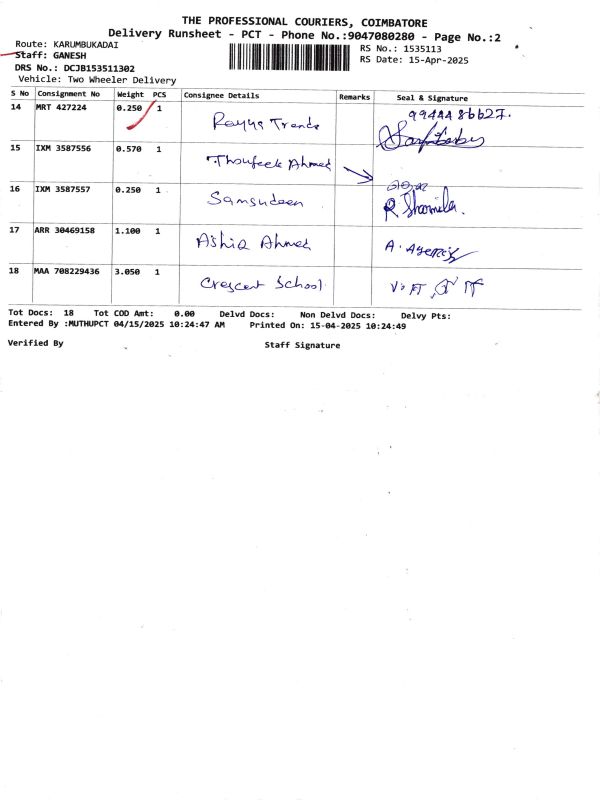 THE PROFESSIONAL COURIERS, COIMBATORE
Delivery Runsheet - PCT - Phone No.:9047080280 - Page No.:2
Route: KARUMBUKADAI
Staff: GANESH
DRS No.: DCJB153511302
Vehicle: Two Wheeler Delivery
RS No.: 1535113
RS Date: 15-Apr-2025
S No Consignment No Weight PCS Consignee Details Remarks Seal & Signature
14 MRT 427224 0.250 1 Rayya Trends 9944486627.
15 IXM 3587556 0.570 1 Thoufeek Ahmed
16 IXM 3587557 0.250 1 Samsudeen R. Sharmila.
17 ARR 30469158 1.100 1 Ashiq Ahmed A.
18 MAA 708229436 3.050 1 Crescent School
Tot Docs: 18 Tot COD Amt: 0.00 Delvd Docs: Non Delvd Docs: Delvy Pts:
Entered By :MUTHUPCT 04/15/2025 10:24:47 AM Printed On: 15-04-2025 10:24:49
Verified By Staff Signature